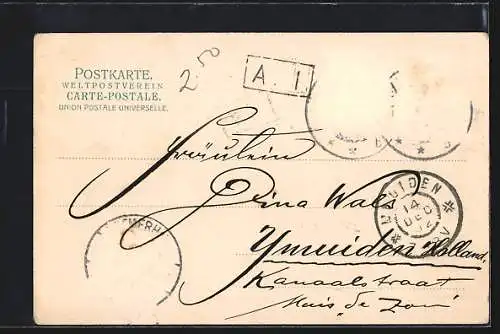 POSTKARTE.
WELTPOSTVEREIN
CARTE-POSTALE.
UNION POSTALE UNIVERSELLE.
2.50
A. I
Fräulein
Dina Wals
Ymuiden Holland.
Kanaalstraat
Huis "de Zon"
MUIDEN
14
DEC
B
B